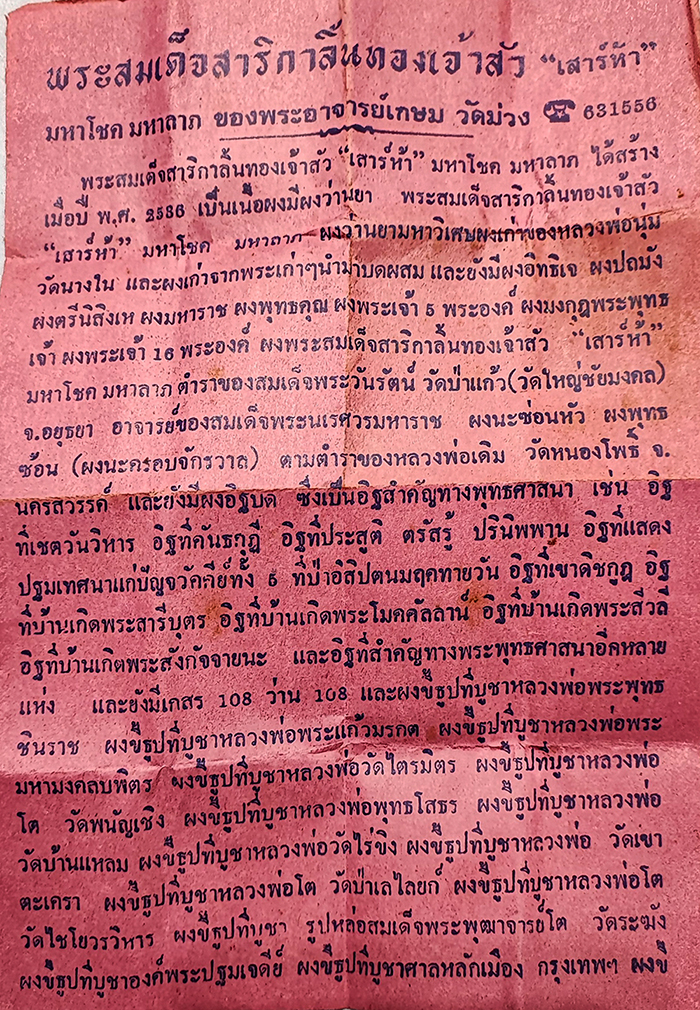 พระสมเด็จสาริกาลิ้นทองเจ้าสัว "เสาร์ห้า"
มหาโชค มหาลาภ ของพระอาจารย์เกษม วัดม่วง ☎ 631556
พระสมเด็จสาริกาลิ้นทองเจ้าสัว "เสาร์ห้า" มหาโชค มหาลาภ ได้สร้าง
เมื่อปี พ.ศ. 2536 เป็นเนื้อผงมีผงว่านยา พระสมเด็จสาริกาลิ้นทองเจ้าสัว
"เสาร์ห้า" มหาโชค มหาลาภ ผงวานยามหาวิเศษผงเก่าของหลวงพ่อนุ่ม
วัดนางใน และผงเก่าจากพระเก่าๆนำมาบดผสม และยังมีผงอิทธิเจ ผงปถมัง
ผงตรีนิสิงเห ผงมหาราช ผงพุทธคุณ ผงพระเจ้า 5 พระองค์ ผงมงกุฎพระพุทธ
เจ้า ผงพระเจ้า 16 พระองค์ ผงพระสมเด็จสาริกาลิ้นทองเจ้าสัว "เสาร์ห้า"
มหาโชค มหาลาภ ตำราของสมเด็จพระวันรัตน์ วัดป่าแก้ว(วัดใหญ่ชัยมงคล)
จ.อยุธยา อาจารย์ของสมเด็จพระนเรศวรมหาราช ผงนะซ่อนหัว ผงพุทธ
ซ้อน (ผงนะครอบจักรวาล) ตามตำราของหลวงพ่อเดิม วัดหนองโพธิ์ จ.
นครสวรรค์ และยังมีผงอิฐบด ซึ่งเป็นอิฐสำคัญทางพุทธศาสนา เช่น อิฐ
ที่เชตวันวิหาร อิฐที่คันธกุฎี อิฐที่ประสูติ ตรัสรู้ ปรินิพพาน อิฐที่แสดง
ปฐมเทศนาแก่ปัญจวัคคีย์ทั้ง 5 ที่ป่าอิสิปตนมฤคทายวัน อิฐที่เขาคิชกูฎ อิฐ
ที่บ้านเกิดพระสารีบุตร อิฐที่บ้านเกิดพระโมคคัลลาน์ อิฐที่บ้านเกิดพระสีวลี
อิฐที่บ้านเกิดพระสังกัจจายนะ และอิฐที่สำคัญทางพระพุทธศาสนาอีกหลาย
แห่ง และยังมีเกสร 108 ว่าน 108 และผงขี้ธูปที่บูชาหลวงพ่อพระพุทธ
ชินราช ผงขี้ธูปที่บูชาหลวงพ่อพระแก้วมรกต ผงขี้ธูปที่บูชาหลวงพ่อพระ
มหามงคลบพิตร ผงขี้ธูปที่บูชาหลวงพ่อวัดไตรมิตร ผงขี้ธูปที่บูชาหลวงพ่อ
โต วัดพนัญเชิง ผงขี้ธูปที่บูชาหลวงพ่อพุทธโสธร ผงขี้ธูปที่บูชาหลวงพ่อ
วัดบ้านแหลม ผงขี้ธูปที่บูชาหลวงพ่อวัดไร่ขิง ผงขี้ธูปที่บูชาหลวงพ่อ วัดเขา
ตะเครา ผงขี้ธูปที่บูชาหลวงพ่อโต วัดป่าเลไลยก์ ผงขี้ธูปที่บูชาหลวงพ่อโต
วัดไชโยวรวิหาร ผงขี้ธูปที่บูชา รูปหล่อสมเด็จพระพุฒาจารย์โต วัดระฆัง
ผงขี้ธูปที่บูชาองค์พระปฐมเจดีย์ ผงขี้ธูปที่บูชาศาลหลักเมือง กรุงเทพฯ ผงขี้